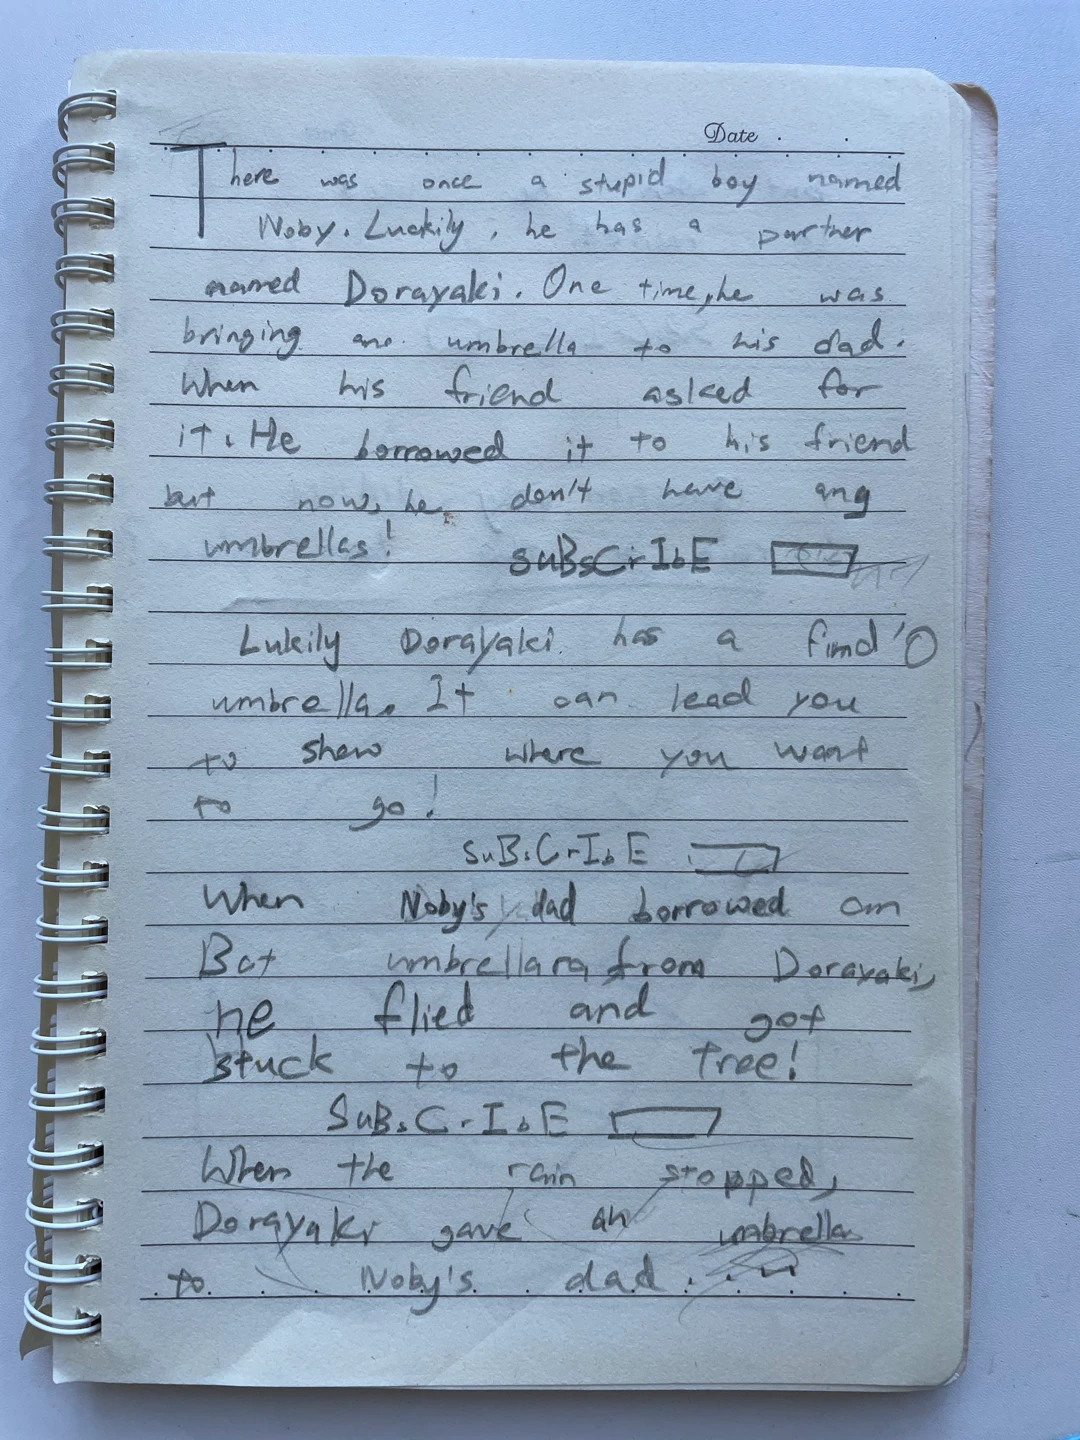 Date
There was once a stupid boy named
Noby. Luckily, he has a partner
named Dorayaki. One time, he was
bringing an umbrella to his dad.
When his friend asked for
it. He borrowed it to his friend
but now, he don't have any
umbrellas!
suBsCrIbE
Lukily Dorayaki has a find'O
umbrella. It can lead you
to show where you want
to go!
suBsCrIbE
When Noby's dad borrowed an
Bat umbrella from Dorayaki,
he flied and got
stuck to the tree!
SuBsCrIbE
When the rain stopped,
Dorayaki gave an umbrella
to Noby's dad...